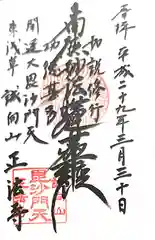 奉拝 平成二十九年三月三十日
初説修行
南無妙法蓮華経
功徳甚多
開運大毘沙門天
東浅草 誠向山 正法寺
毘沙門天